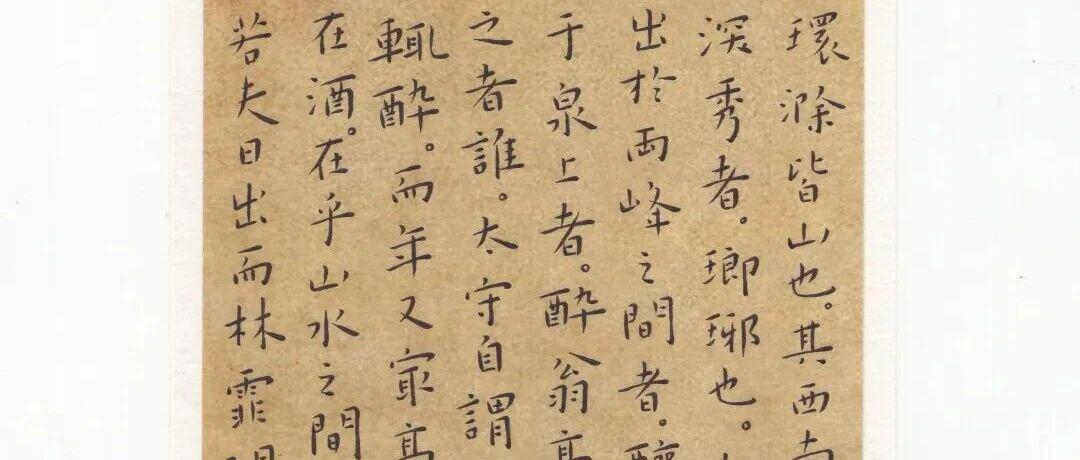 環滁皆山也。其西南
深秀者。瑯琊也。
出於兩峰之間者。釀
于泉上者。醉翁亭
之者誰。太守自謂
輒醉。而年又寂高
在酒。在乎山水之間
若夫日出而林霏開